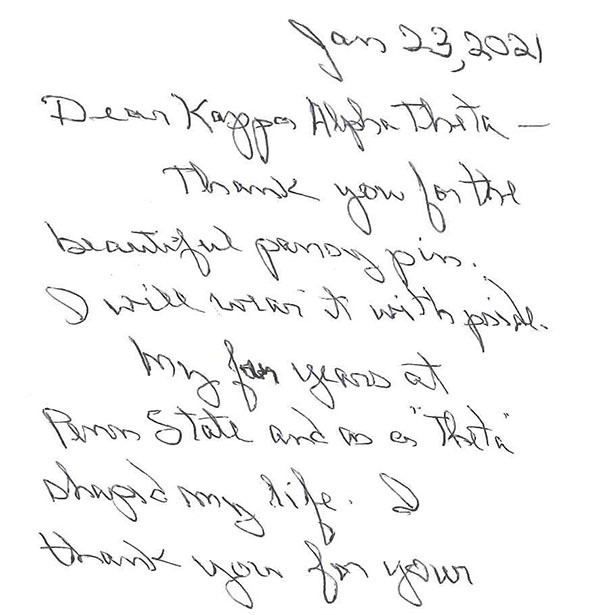 Jan 23, 2021
Dear Kappa Alpha Theta —
Thank you for the
beautiful pansy pin.
I will wear it with pride.
My four years at
Penn State and as a "Theta"
shaped my life. I
thank you for your